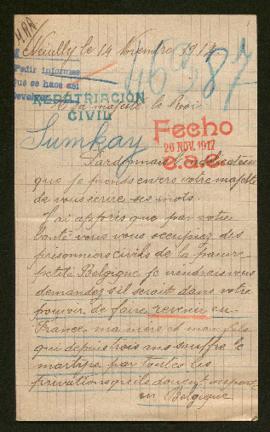 Neuilly le 14 Novembre 1917
Pedir informes
que se hace así
REPATRIACIÓN
CIVIL
A sa majesté le Roi
Sumkay
Fecho
26 NOV. 1917
Pardonnais
que je prends envers votre majesté
de vous ecrire ses mots.
J'ai appris que par votre
bonté vous vous occupiez des
prisonniers civils de la pauvre
petite Belgique je voudrais vous
demandez s'il serait dans votre
pouvoir de faire revenir en
France ma mère et mon fils
qui depuis trois ans souffre le
martyre par toutes les
privations qu'ils doivent
en Belgique